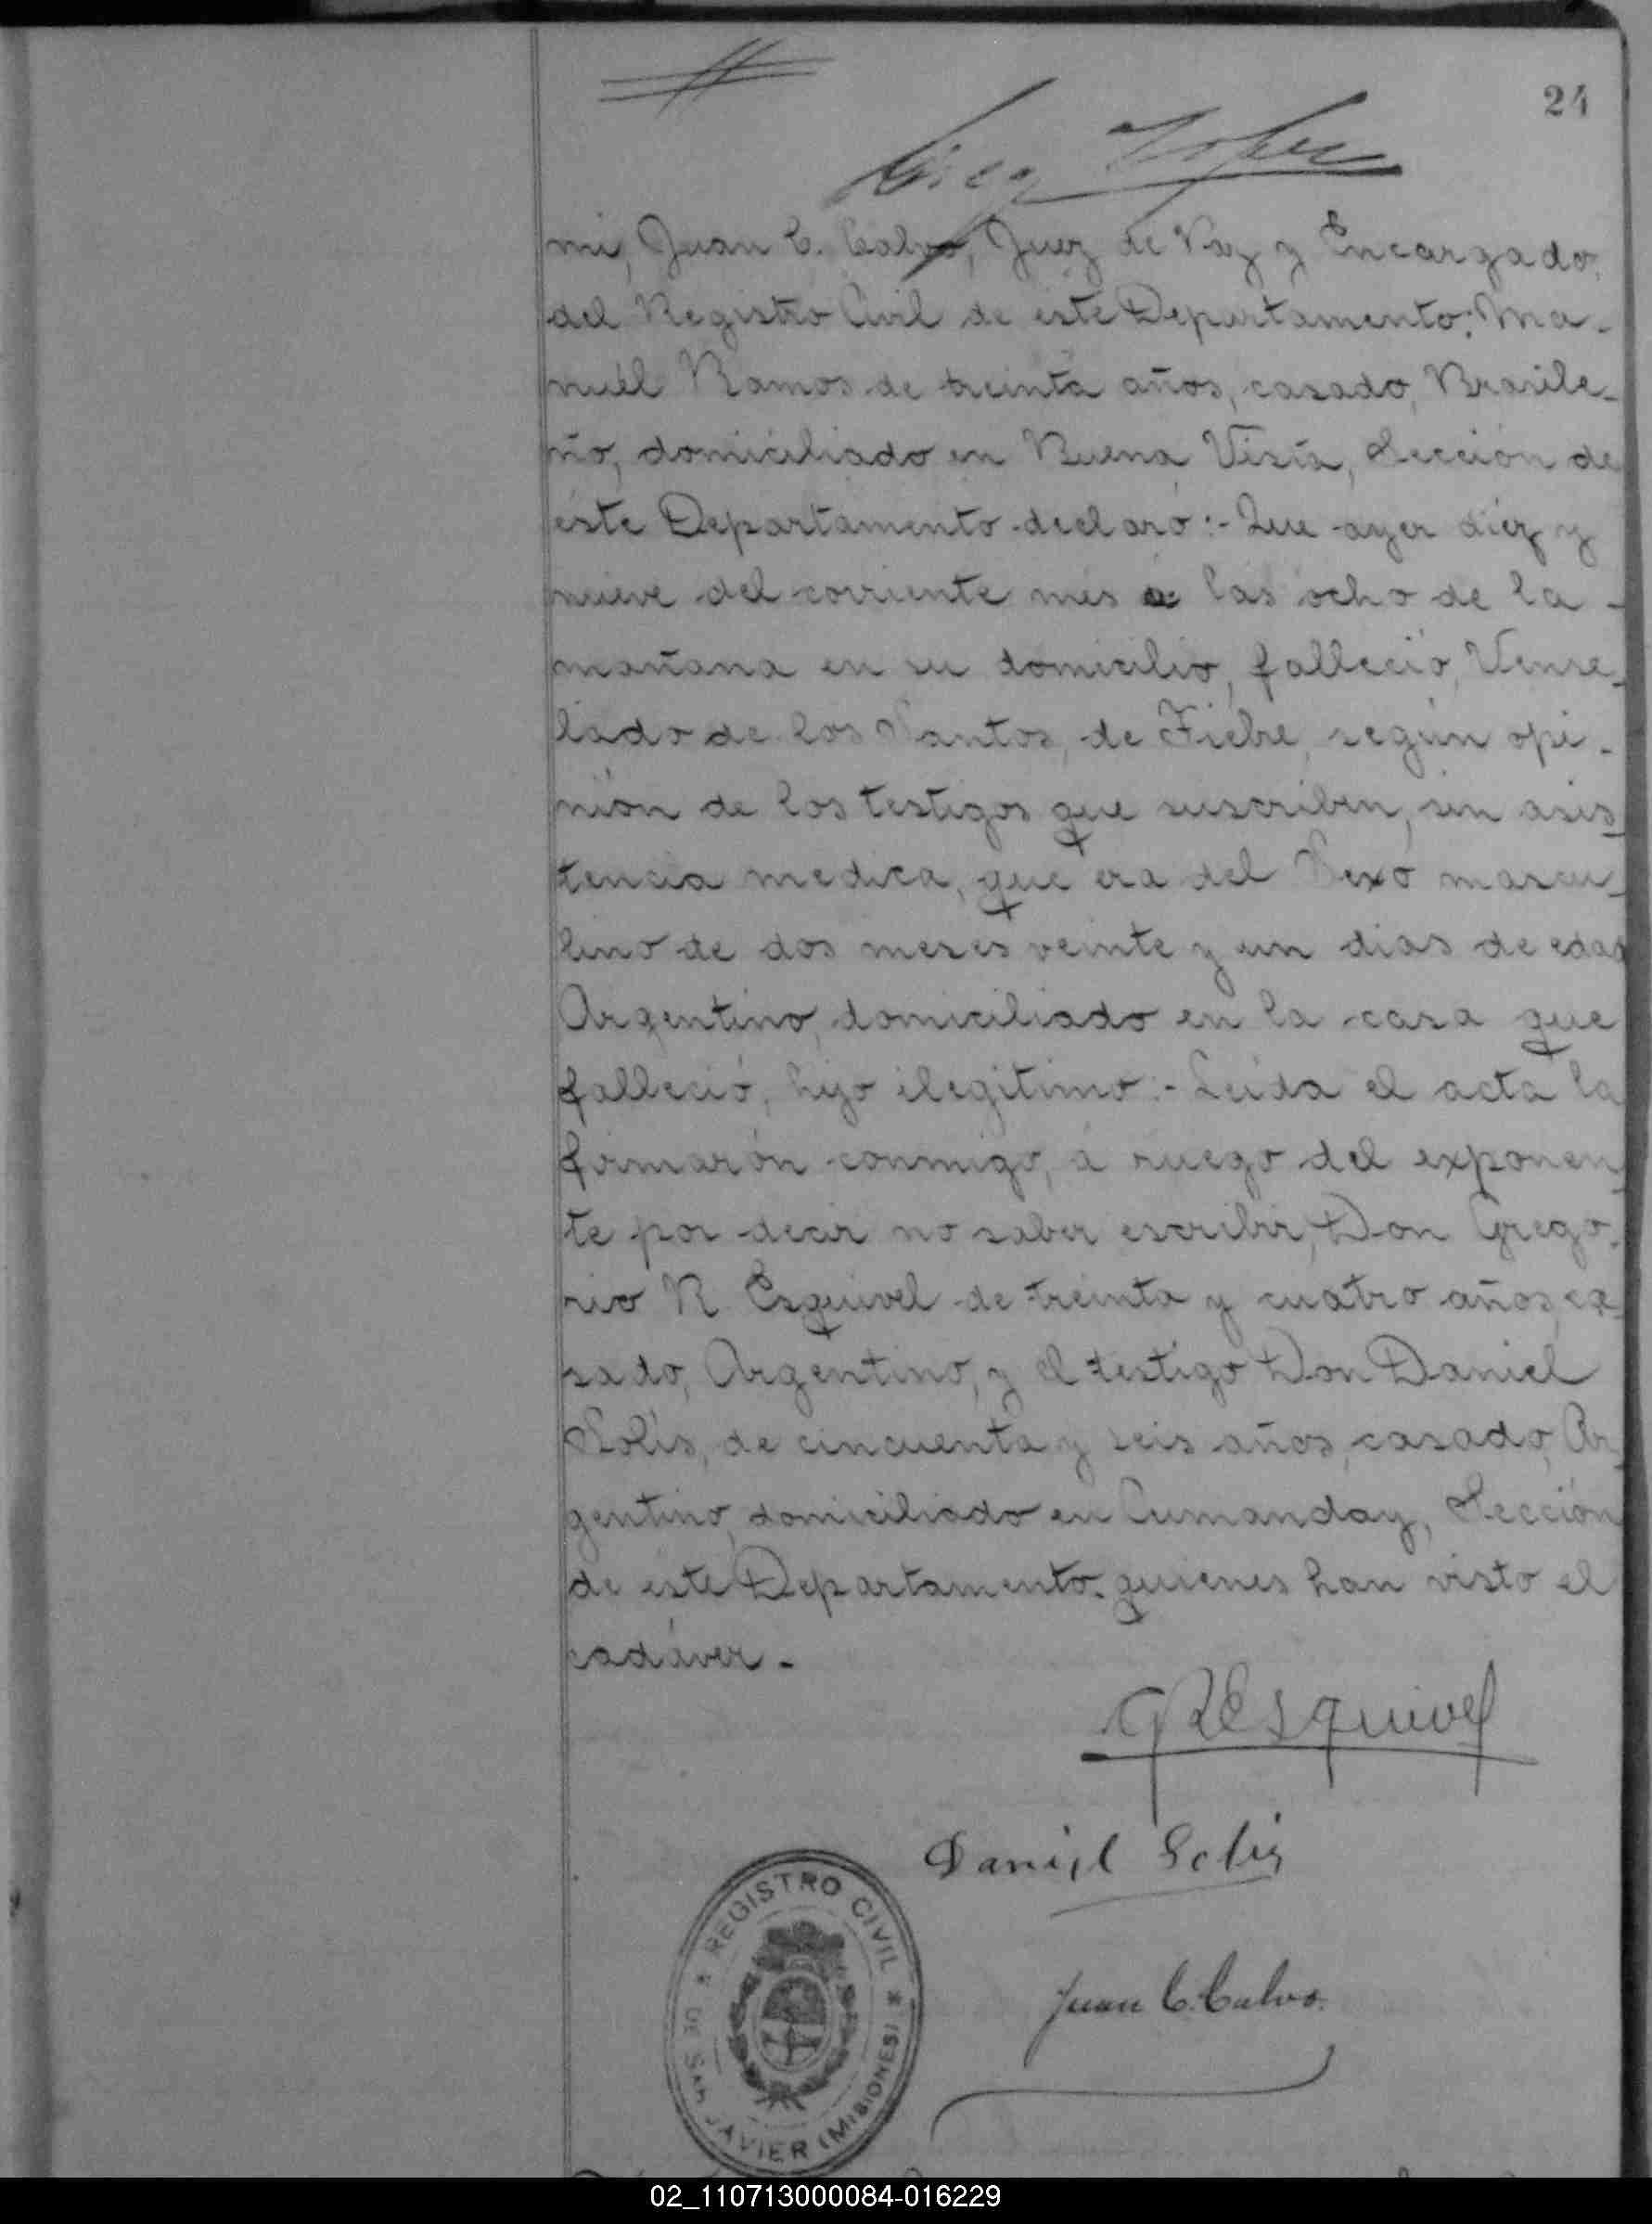 24
mi, Juan C. Calvo, Juez de Paz y Encargado,
del Registro Civil de éste Departamento: Ma-
nuél Ramos de treinta años, casado, Brasile-
ño, domiciliado en Buena Vista, Sección de
éste Departamento declaró:- Que ayer diéz y
nueve del corriente mes a las ocho de la -
mañana en su domicilio, falleció, Vense-
lado de los Santos, de Fiebre, según opi-
nión de los testigos que suscriben, sin asis
tencia medica, que era del Sexo mascu-
lino de dos meses veinte y un dias de edad
Argentino, domiciliado en la casa que
falleció, hijo ilegitimo:- Leida el acta la
firmarón conmigo, á ruego del exponen
te por decir no saber escribir, Don Grego-
rio R. Esquivel de treinta y cuatro años, ca-
sado, Argentino, y el testigo Don Daniel
Solís, de cincuenta y seis años, casado, Ar
gentino, domiciliado en Cumanday, Sección
de éste Departamento. quienes han visto el
cadáver.-
G R Esquivel
Daniel Solis
REGISTRO CIVIL
DE SAN JAVIER (MISIONES)
Juan C. Calvo.
02_110713000084-016229